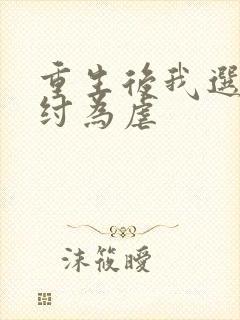 重生後我選
紂為虐
沫筱曖